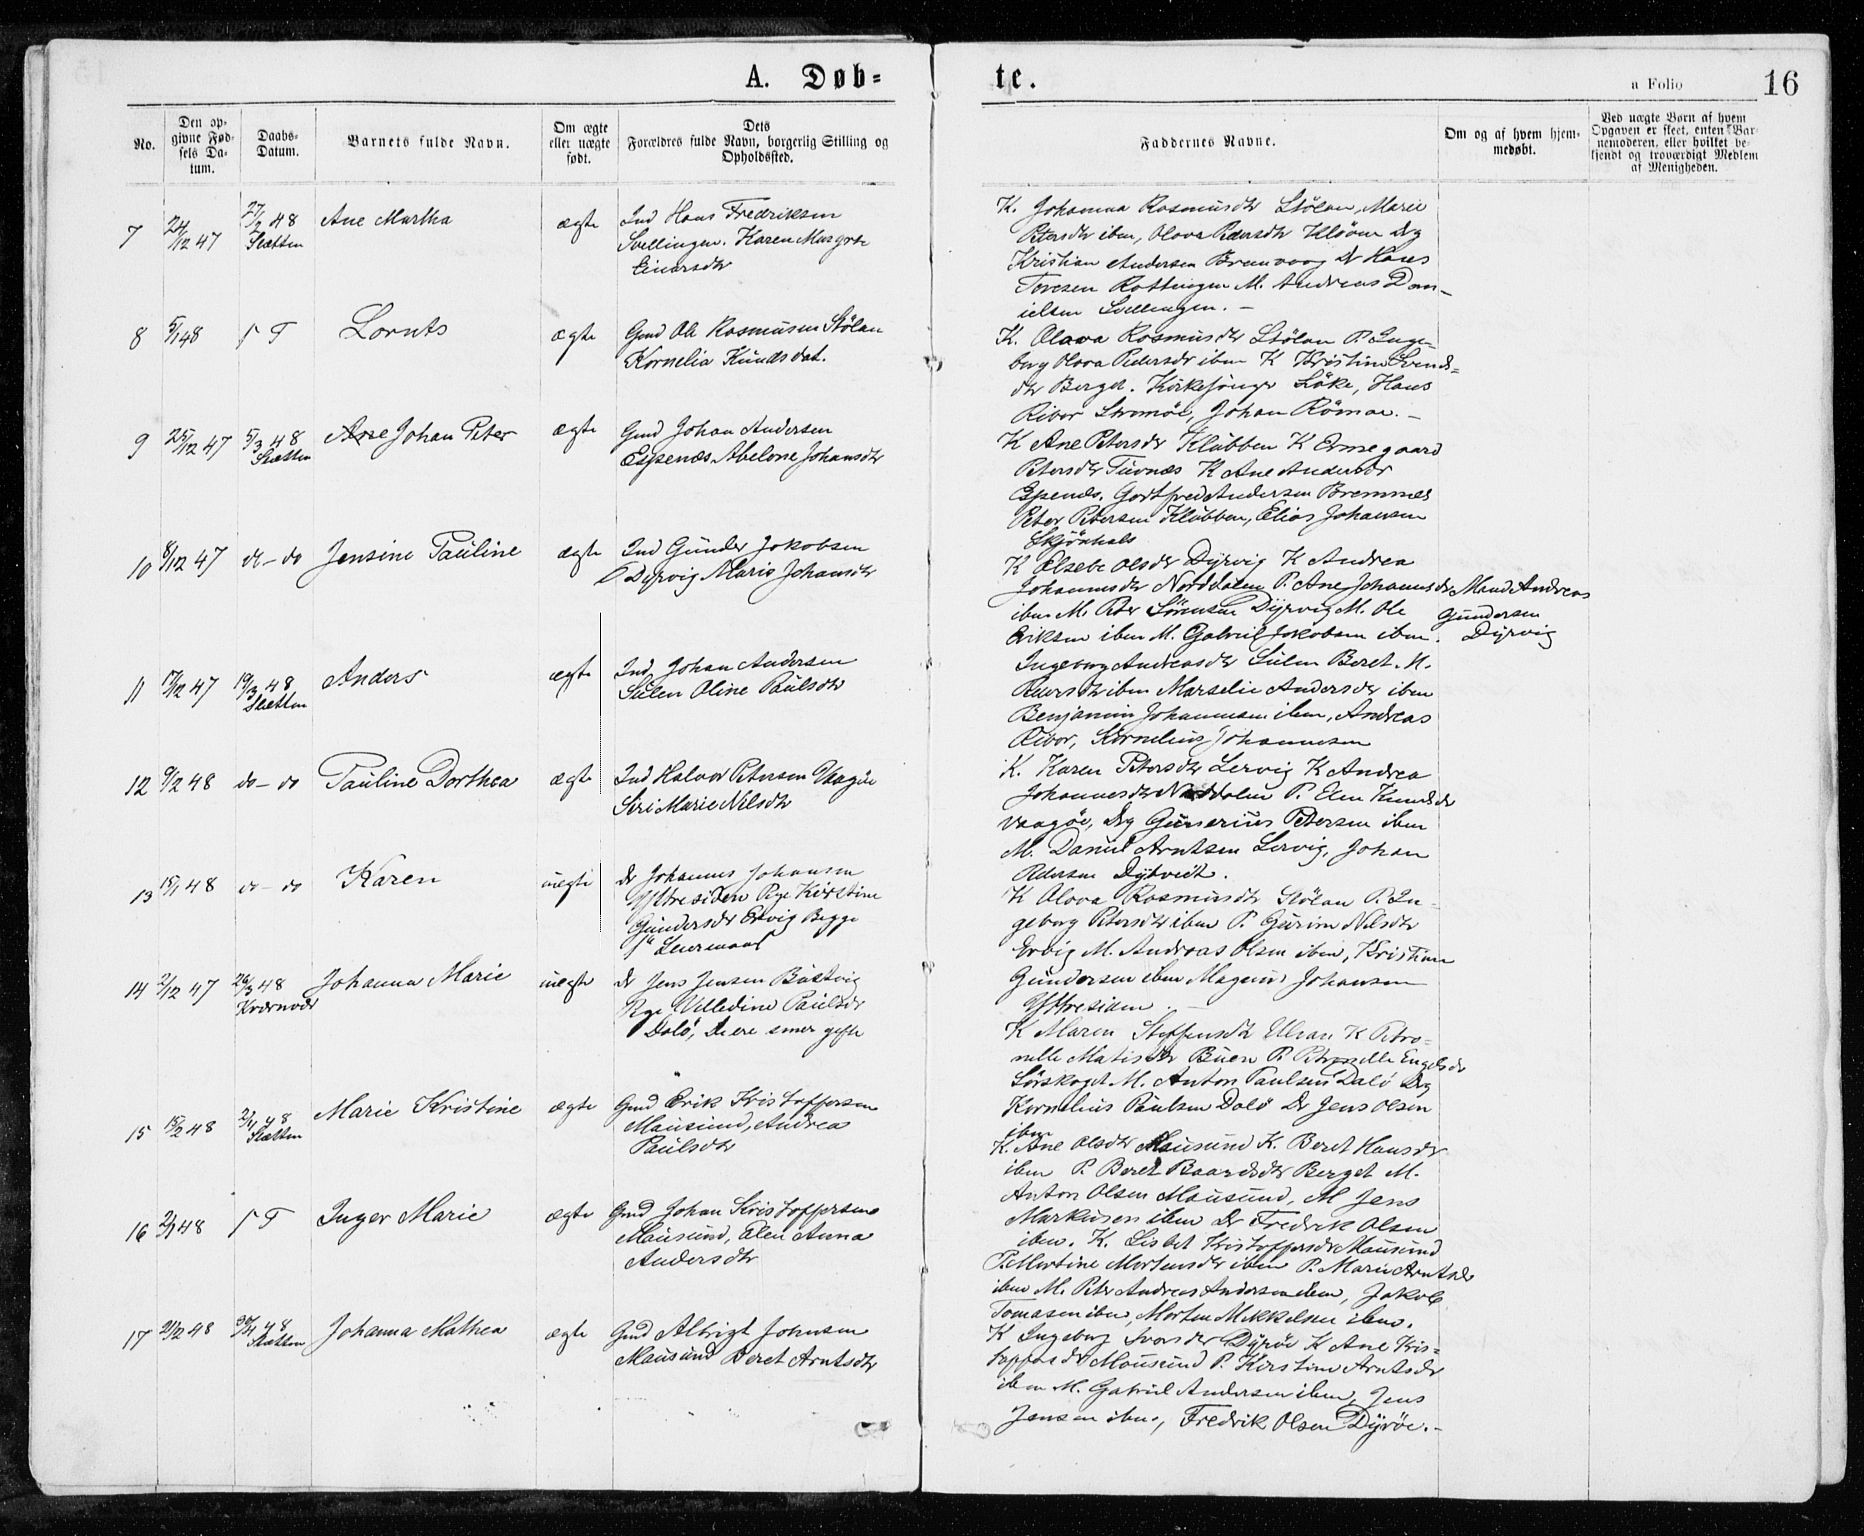 A. Døb=
te.
a Folio 16
No.
Den op-
givne Fød-
sels Da-
tum.
Daabs-
Datum.
Barnets fulde Navn.
Om ægte
eller uægte
født.
Dets
Forældres fulde Navn, borgerlig Stilling og
Opholdssted.
Faddernes Navne.
Om og af hvem hjem-
medøbt.
Ved uægte Børn af hvem
Opgaven er skeet, enten Bar-
nemoderen, eller hvilket be-
kjendt og troværdigt Medlem
af Menigheden.
7 24/12 47 27/2 48 Ane Martha ægte Ind Hans Fredriksen
Slætten Svellingen. Karen Margrete
Einersdtr
K. Johanna Rasmusdtr Stølan, Marie
Petersdtr ibm, Olava Pedersdtr Kløven Drg
Kristian Andersen Bremvaag Dr Hans
Toresen Rottingen M. Andreas Dan-
ielsen Svellingen. -
8 5/1 48 5 T Lornts ægte Gmd Ole Rasmusen Stølan
Kornelia Knudsdat.
K. Olava Rasmusdtr Stølan P. Inge-
borg Olava Pedersdr ibm K Kristine Svends-
dtr Berget. Kirkesanger Løke, Hans
Ribor Strømøe, Johan Römoe. -
9 25/12 47 5/3 48 Ane Johan Peter ægte Gmd Johan Andersen
Slætten Espenæs Abelone Johansdtr
K Ane Petersdr Klubben K Ermegaard
Petersdtr Tuvnæs K Ane Andersdr
Espenæs. Godtfred Andersen Bremnes
Peter Petersen Klubben, Elias Johansen
Skjönhals
10 8/12 47 do - do Jensine Pauline ægte Ind Gunder Jakobsen
Dyrvig Maris Johansdtr
K Elsebe Olsdr Dyrvig K Andrea
Johannesdtr Norddalen P. Ane Johannesdr
ibm M. Peter Sörensen Dyrvig M. Ole
Eriksen ibm M. Gabriel Jakobsen ibm.
Mand Andreas
Gundersen
Dyrvig
11 17/12 47 19/3 48 Anders ægte Ind Johan Andersen
Slætten Sulen Oline Paulsdtr
Ingeborg Andreasdtr Sulen Beret. M.
Pedersdtr ibm Marselie Andersdr ibm
Benjamin Johannesen ibm, Andreas
Ribor, Kornelius Johannesen
12 9/2 48 do - do Pauline Dorthea ægte Ind Halvor Petersen Vaagøe
Siri Marie Nilsdtr
K. Karen Petersdtr Lervig K Andrea
Johannesdtr Norddalen P. Elen Knudsdr
Vaagøe, Drg Gunerius Petersen ibm
M. Daniel Arntsen Lervig, Johan
Pedersen Dybvik.
13 15/1 48 do - do Karen uægte Dr Johannes Johansen
Yttresiden Pge Kirstine
Gundersdr Ervig Begge
1ste Leiermaal
K Olava Rasmusdtr Stölan P. In-
geborg Petersdtr ibm P. Gurine Nilsdtr
Ervig M. Andreas Olsen ibm, Kristian
Gundersen ibm Magnus Johansen
Yttresiden
14 2/12 47 26/3 48 Johanna Marie uægte Dr Jens Jensen Bustvig
Kværnvær Pge Villedine Paulsdr
Dalø, De ere siner gifte
K Maren Steffensdtr Ulvan K Petro-
nelle Matisdtr Buen P. Petronelle Engelsdr
Sörskaget M. Anton Paulsen Dalö Drg
Kornelius Paulsen Dalö Dr Jens Olsen
ibm
15 13/2 48 2/4 48 Marie Kristine ægte Gmd Erik Kristoffersen
Slætten Mausund, Andrea
Paulsdtr
K. Ane Olsdtr Mausund K. Beret Hansdr
ibm P. Beret Baardsdtr Berget M.
Anton Olsen Mausund, M Jens
Markusen ibm Dr Fredrik Olsen
ibm.
16 2/1 48 5 T Inger Marie ægte Gmd Johan Kristoffersen
Mausund, Elen Anna
Andersdtr
K. Lisbet Kristoffersdr Mausund
P. Martine Mortensdr ibm P. Marie Arntsdr
ibm M. Peter Andreas Andersen ibm, Jakob
Tomasen ibm, Morten Mikkelsen ibm.
17 21/2 48 30/4 48 Johanna Mathea ægte Gmd Albrigt Johnsen
Slætten Mausund Beret Arntsdtr
K Ingeborg Ivarsdtr Dyröe K Ane Kris-
toffersdr Mausund P. Kirstine Arntsdr
ibm M. Gabriel Andersen ibm, Jens
Jensen ibm, Fredrik Olsen Dyröe. -